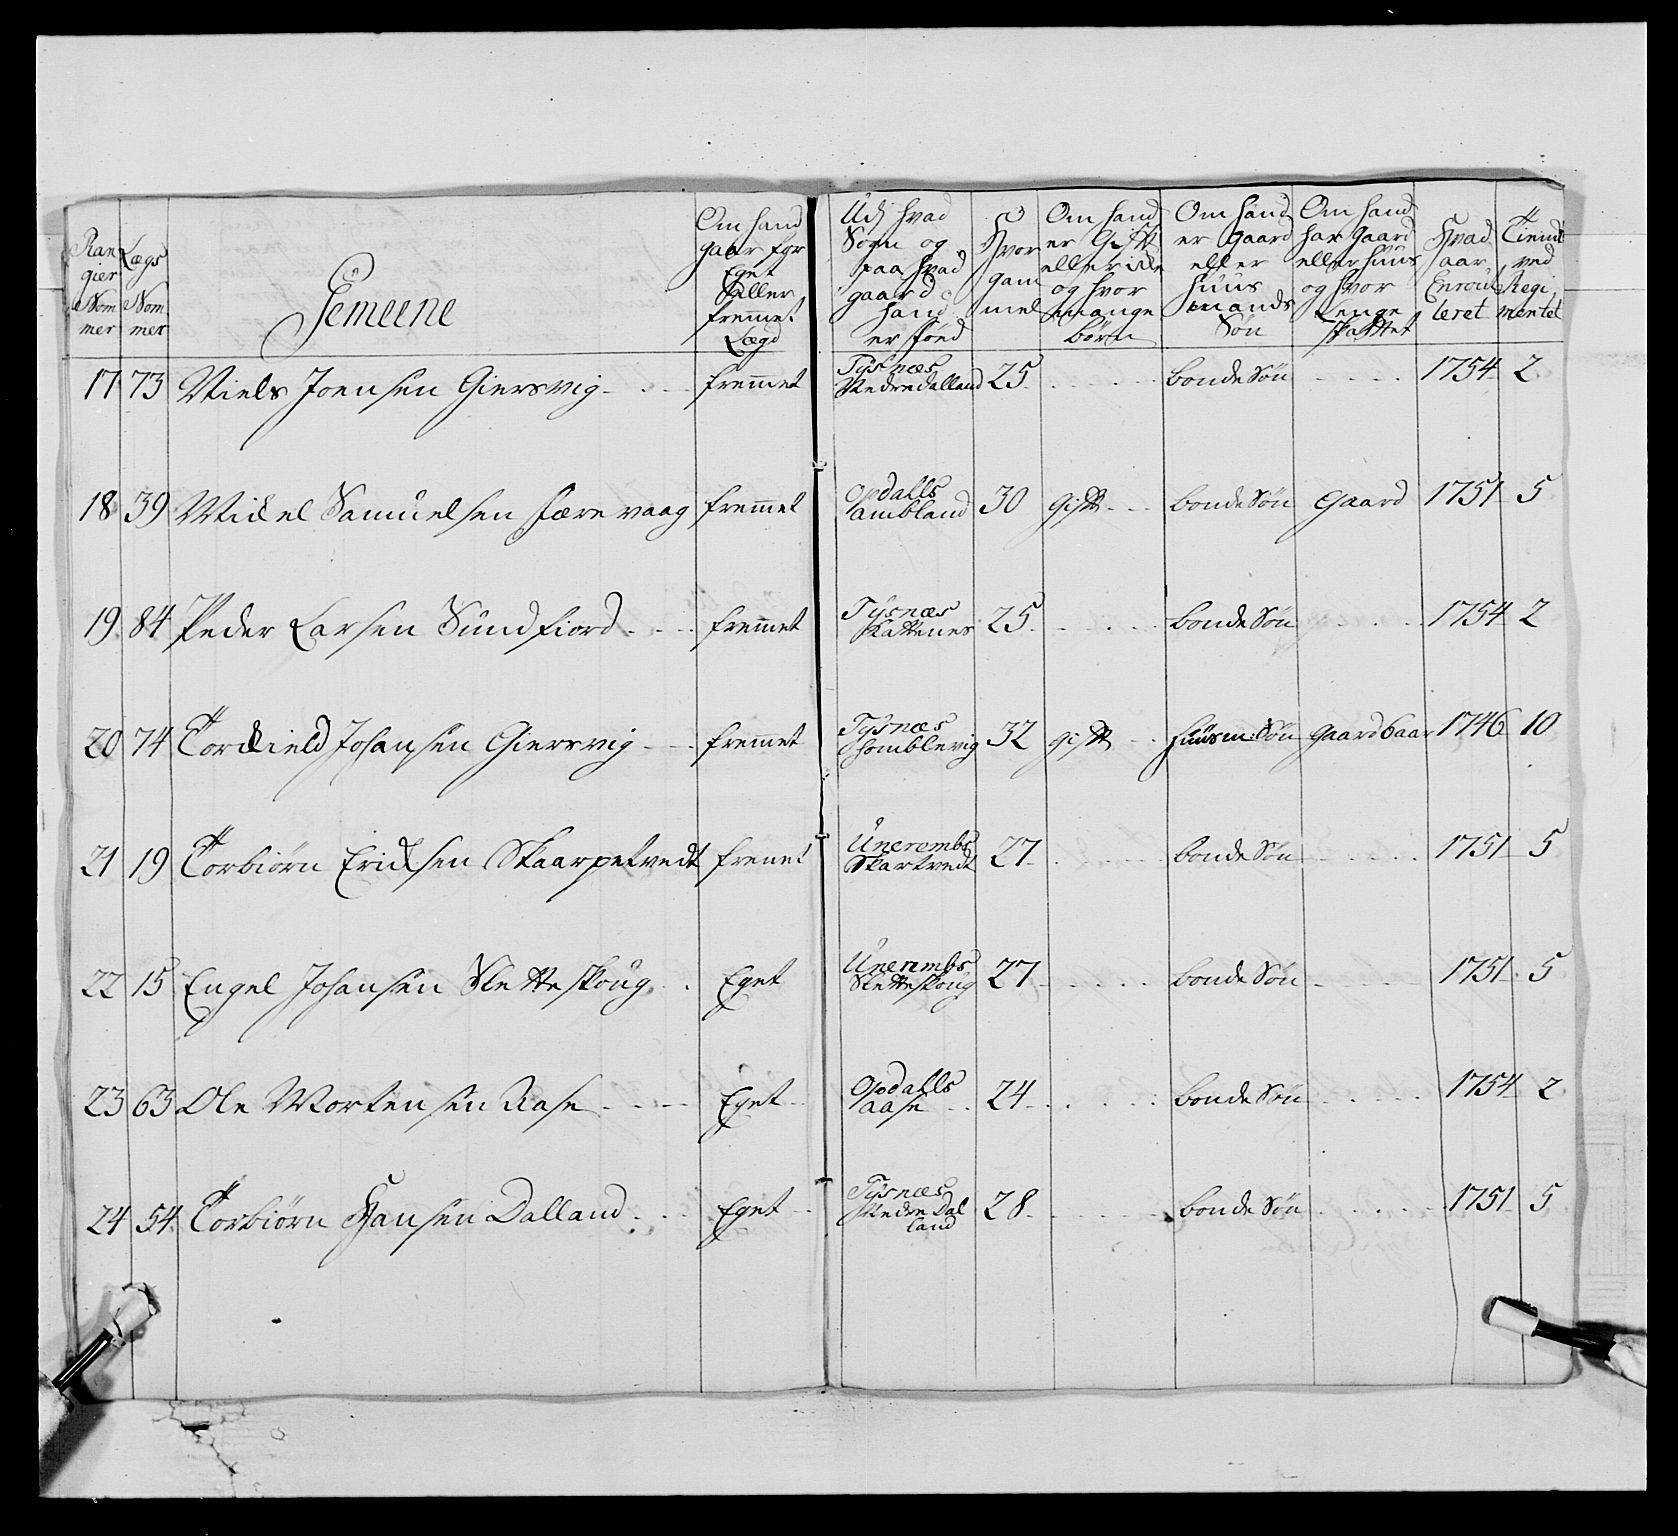 Ran
gier
Nom
mer
Lægs
Nom
mer
Gemeene
Om hand
gaar for
Eget
Eller
fremmet
Lægd
Udj hvad
Sogn og
paa hvad
gaard
hand
er föed
Hvor
gam
mel
Om hand
er Gift
eller icke
og hvor
mange
börn
Om hand
er gaard
eller
huus
mands
Søn
Om hand
har gaard
eller huus
og hvor
Lenge
skattet
Hvad
aar
Enroul
leret
Tient
ved
Regi
mentet
17 73 Niels Joensen Giersvig fremmet Tysnæs Nedredalland 25 bonde Søn 1754 2
18 39 Mickel Samuelsen færevaag fremmet Opdalls ambland 30 gift bonde Søn Gaard 1751 5
19 84 Peder Larsen Sundfiord fremmet Tysnæs Kattenes 25 bonde Søn 1754 2
20 74 Torckield Johansen Giersvig fremmet Tysnæs homblevig 32 gift huusm: Søn gaard 6 aar 1746 10
21 19 Torbiørn Ericksen Skaarpetvedt fremet Unerembs Skartvedt 27 bonde Søn 1751 5
22 15 Engel Johansen Sletteskoug Eget Unerembs Sletteskoug 27 bonde Søn 1751 5
23 63 Ole Mortensen Aase Eget Opdalls aase 24 bonde Søn 1754 2
24 54 Torbiørn Hansen Dalland Eget Tysnæs Nedre Dal land 28 bonde Søn 1751 5